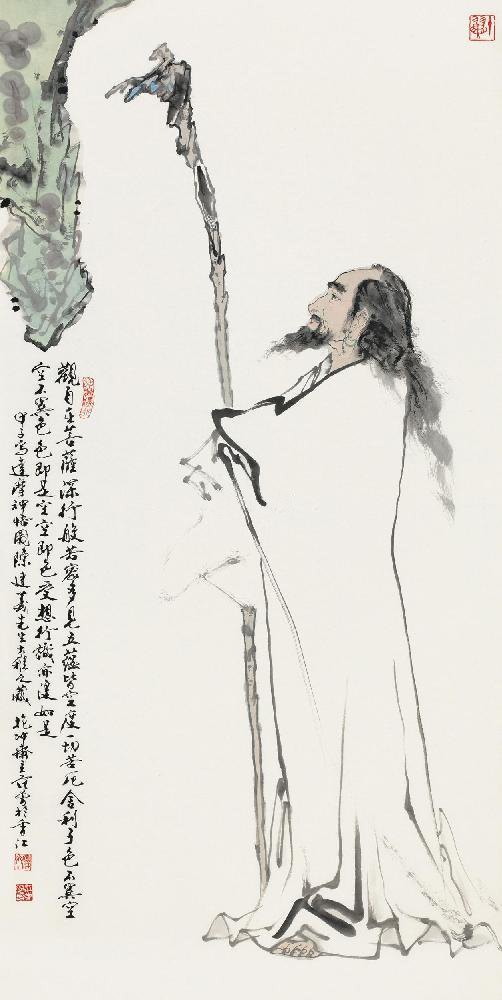 觀自在菩薩深行般若蜜多見五蘊皆空度一切苦厄舍利子色不異空
空不異色色即是空空即色受想行識亦復如是
甲子寫達摩神悟圖陳建先生大雅之藏 抱沖齋主范曾於香江